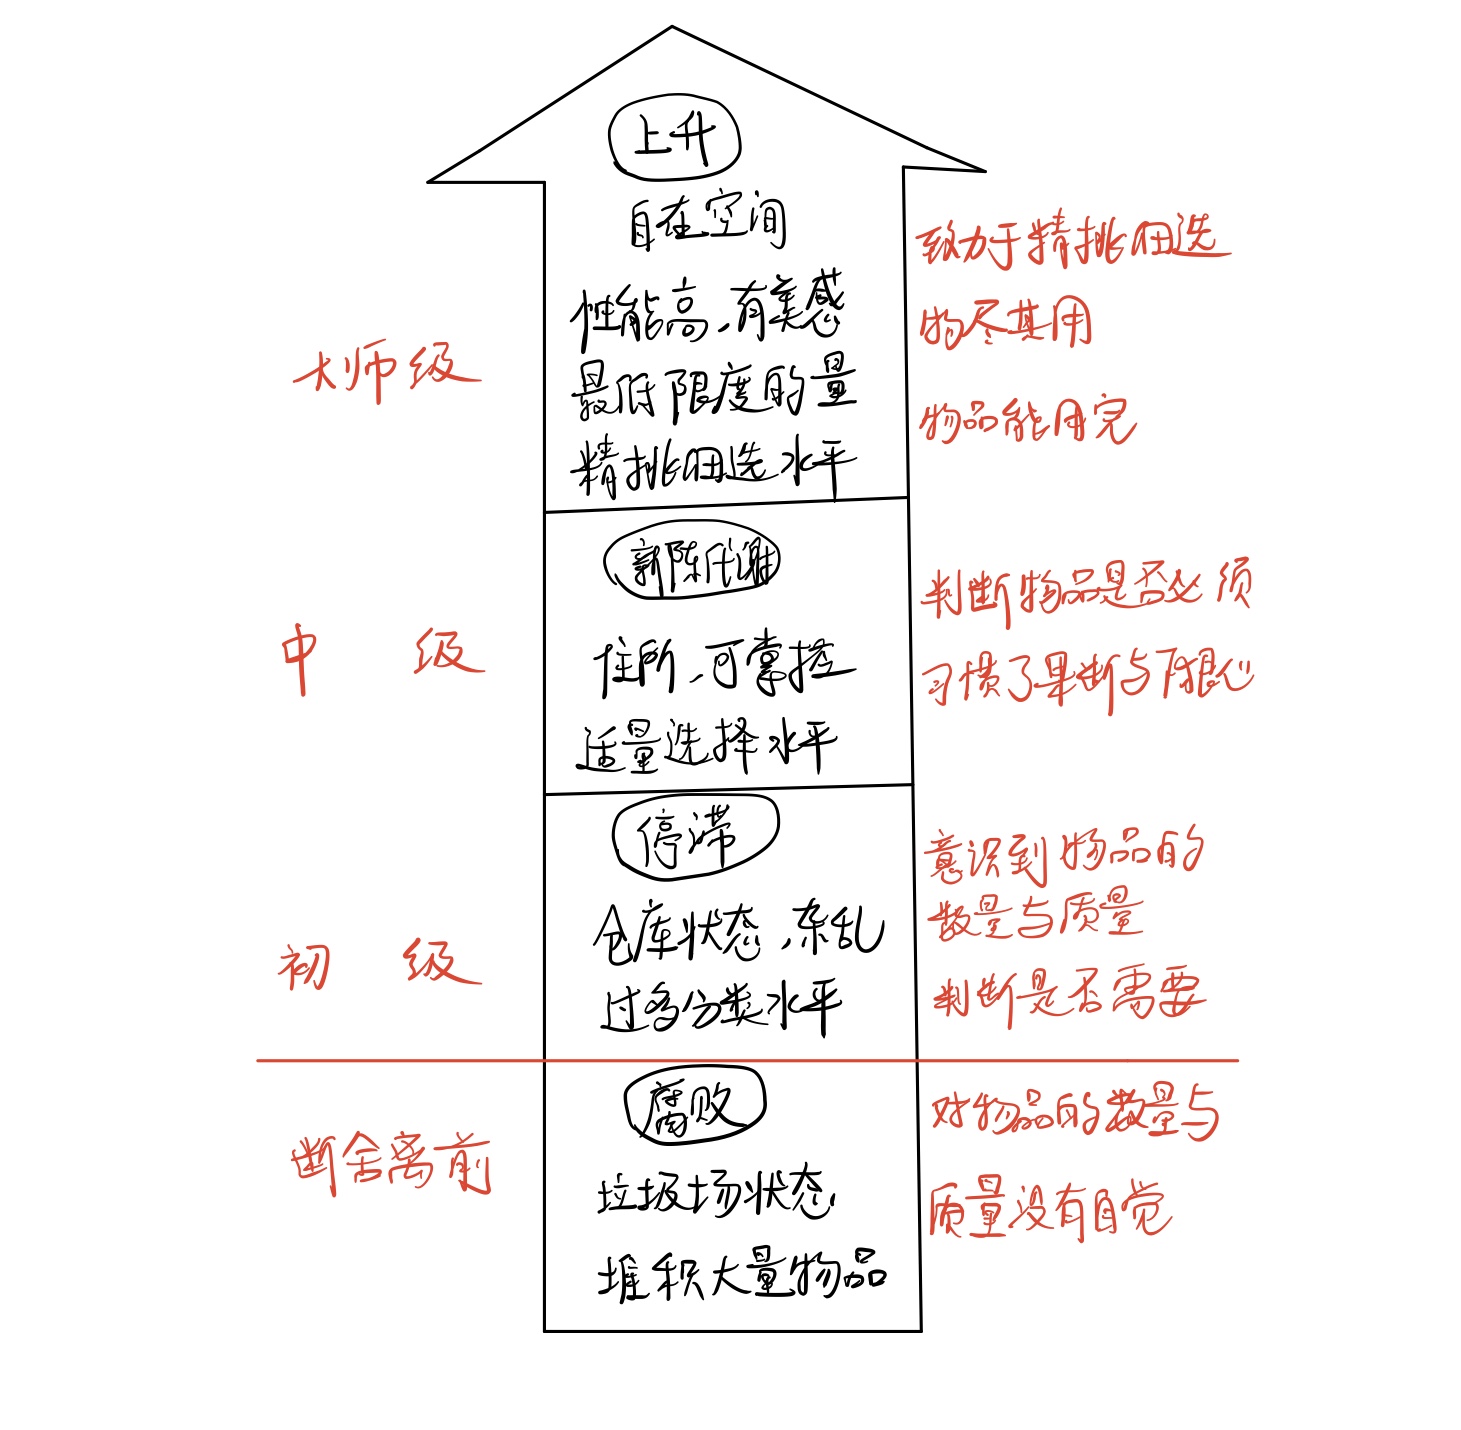 上升
自在空间
性能高,有美感
最低限度的量
精挑细选水平
大师级
致力于精挑细选
物尽其用
物品能用完
新陈代谢
住所,可掌控
适量选择水平
中 级
判断物品是否必须
习惯了果断与下狠心
停滞
仓库状态,杂乱
过多分类水平
初 级
意识到物品的
数量与质量
判断是否需要
腐败
垃圾场状态,
堆积大量物品
断舍离前
对物品的数量与
质量没有自觉